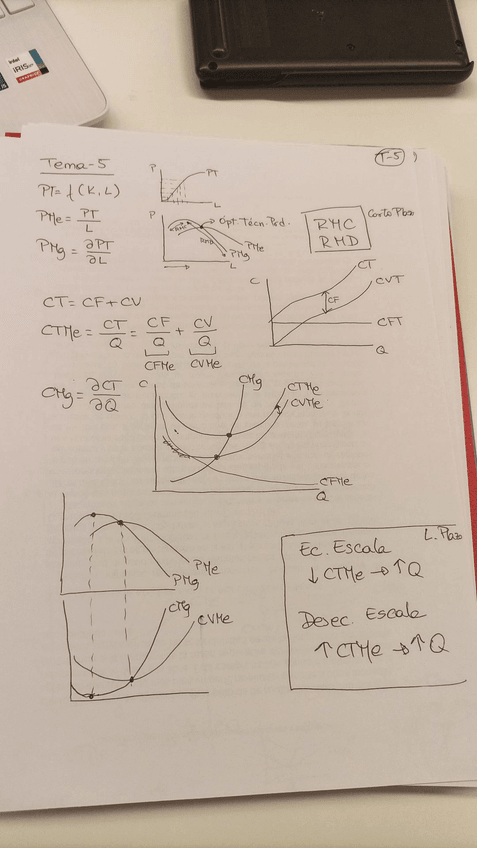 intel
IRIS Xe
GRAPHICS
T-5
Tema-5
PT= f(K,L)
PMe = PT/L
PMg = ∂PT/∂L
P
PT
L
P
Opt Técn. Prd.
RMC
RMD
PMe
PMg
L
Corto Plazo
RMC
RMD
CT = CF + CV
CTMe = CT/Q = CF/Q + CV/Q
CFMe CVMe
C
CT
CVT
CF
CFT
Q
CMg = ∂CT/∂Q
C
CMg
CTMe
CVMe
CFMe
Q
PMe
PMg
CMg
CVMe
L. Plazo
Ec. Escala
↓ CTMe → ↑ Q
Desec. Escala
↑ CTMe → ↑ Q